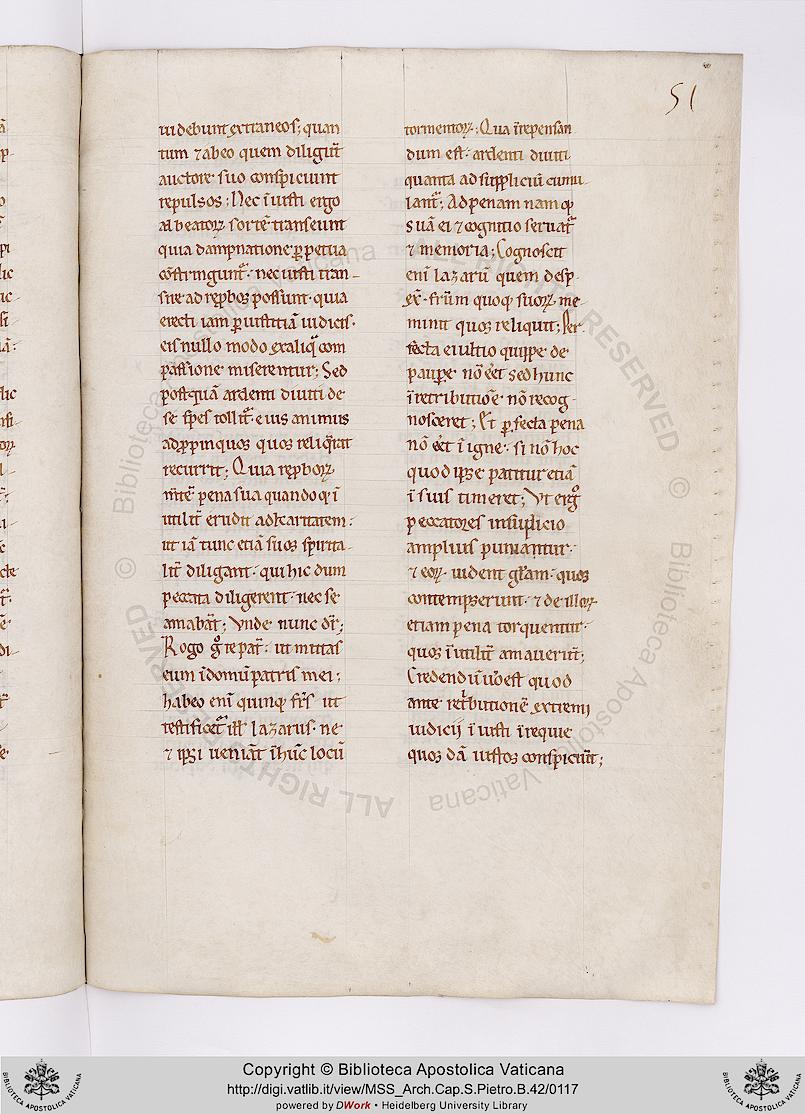 51
uidebunt extraneos; quan
tum ⁊ abeo quem diligūt
auctore suo conspiciunt
repulsos; Nec īiusti ergo
ad beatoꝝ sortē transeunt
quia dampnatione ꝑpetua
cōstringunt᷑· nec iusti tran-
sire ad reꝑbos possunt· quia
erecti iam ꝑ iustitiā iudicis·
eis nullo modo ex aliq̃ com
passione miserentur; Sed
postquā ardenti diuiti de
se spes tollit᷑· eius animus
ad ꝓpinquos quos reliq̃rat
recurrit; Quia reꝑboꝝ
mītē pena sua quandoq; ī
utilit᷑ erudit ad caritatem:
ut iā tunc etiā suos spirita-
lit᷑ diligant· qui hic dum
peccata diligerent· nec se
amabāt; Unde nunc dr̄;
Rogo g̊ te pat᷑· ut mittas
eum ī domū patris mei;
habeo enī quinq; fr̄s ut
testificet᷑ ill̄ lazarus· ne
⁊ ipsi ueniāt ī hūc locū
tormentoꝝ; Qua ī repensan
dum est· ardenti diuiti
quanta ad suppliciū cumu-
lant᷑; Ad penam namq;
suā ei ⁊ cognitio seruat᷑
⁊ memoria; Cognoscit
enī lazarū quem desp-
ex̄· fr̄um quoq; suoꝝ me-
minit quos reliquit; Per
fecta ei ultio quippe de
paupere nō eēt sed hunc
ī retributiōe nō recog-
nosceret; Et ꝑfecta pena
nō eēt ī igne· si nō hoc
quod ipse patitur etiā
ī suis timeret; Ut erg̊
peccatores in suplicio
amplius puniantur·
⁊ eoꝝ uident gl̄am· quos
contempserunt· ⁊ de illoꝝ
etiam pena torquentur·
quos īutilit᷑ amauerūt;
Credendū ūo est quod
ante ret̄butionē extremi
iudicij īiusti ī requie
quosdā iustos conspiciūt;
Copyright © Biblioteca Apostolica Vaticana
http://digi.vatlib.it/view/MSS_Arch.Cap.S.Pietro.B.42/0117
powered by DWork • Heidelberg University Library